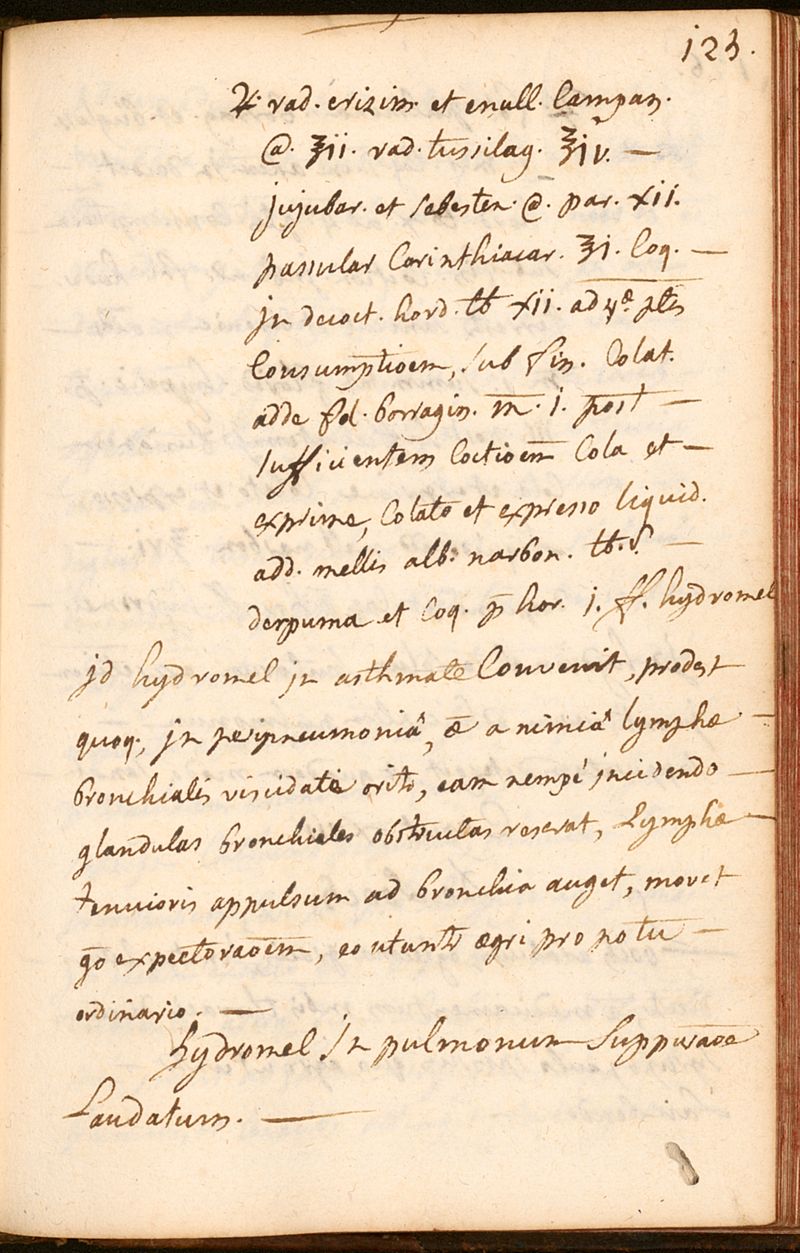 123.
♃ rad. erizim. et enull. Campan.
@. ℥ii. rad. tussilag. ℥iv. —
jujubar. et sebesten. @. par. xii.
passular Corinthiacar. ℥i. Coq. —
jn decoct. hord. ℔ xii. ad 4ᵃ ptis
Consumptioem, sub fin. Colat.
adde fol. borragin. m̄. i. post —
sufficientem Coctioem Cola et —
exprime, Colato et expresso liquid.
add. mellis alb. narbon. ℔. ß. —
despuma et Coq. p̄ hor. j. ff. hydromel
jd hydromel jn asthmate Convenit, prodest
quoq; jn peripneumoniâ, æ a nimiâ lymphæ —
bronchialis visciditate orito, eam nempé jncidendo —
glandulas bronchiales obstructas reserat, Lymphæ —
tenuioris appulsum ad bronchia auget, movet
g̅o expectoraōem, eo utuntr ægri pro potu —
ordinario. —
hydromel Jn pulmonum Suppuraōe
Laudatum. —